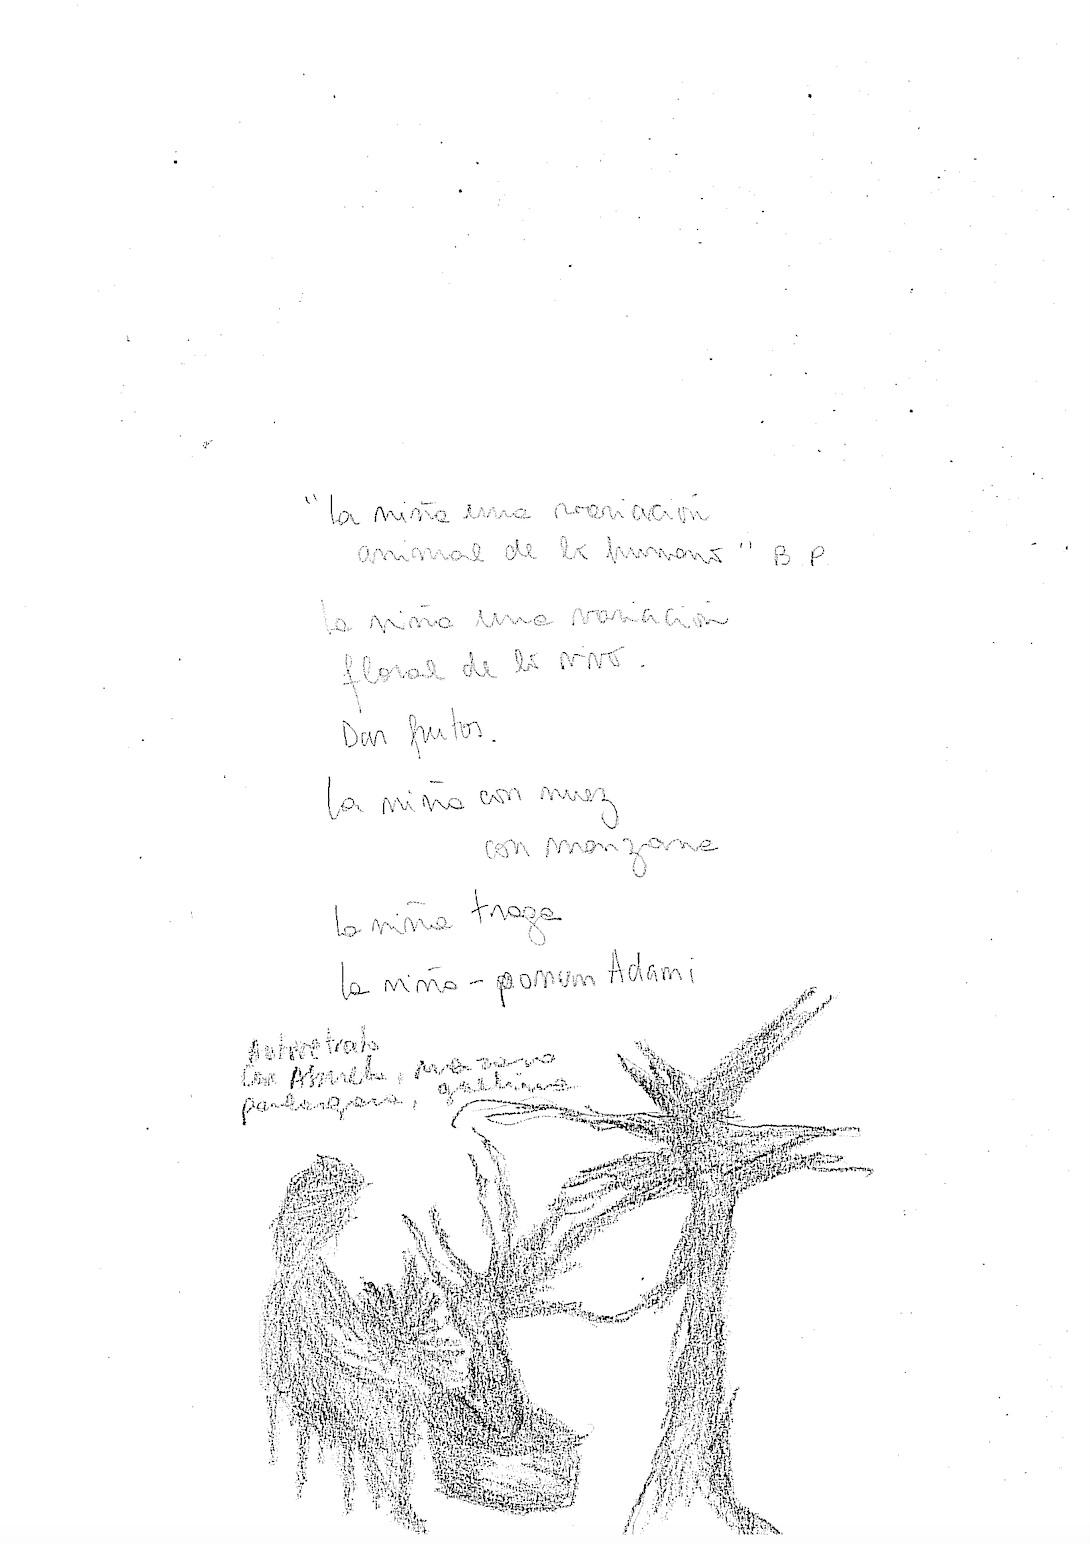 "la niña una variación
animal de lo humano" B. P.
la niña una variación
floral de lo vivo.
Dar frutos.
la niña con nuez
con manzana
la niña traga
la niña - pomum Adami
Autorretrato
con Abuela, manzano
gallina